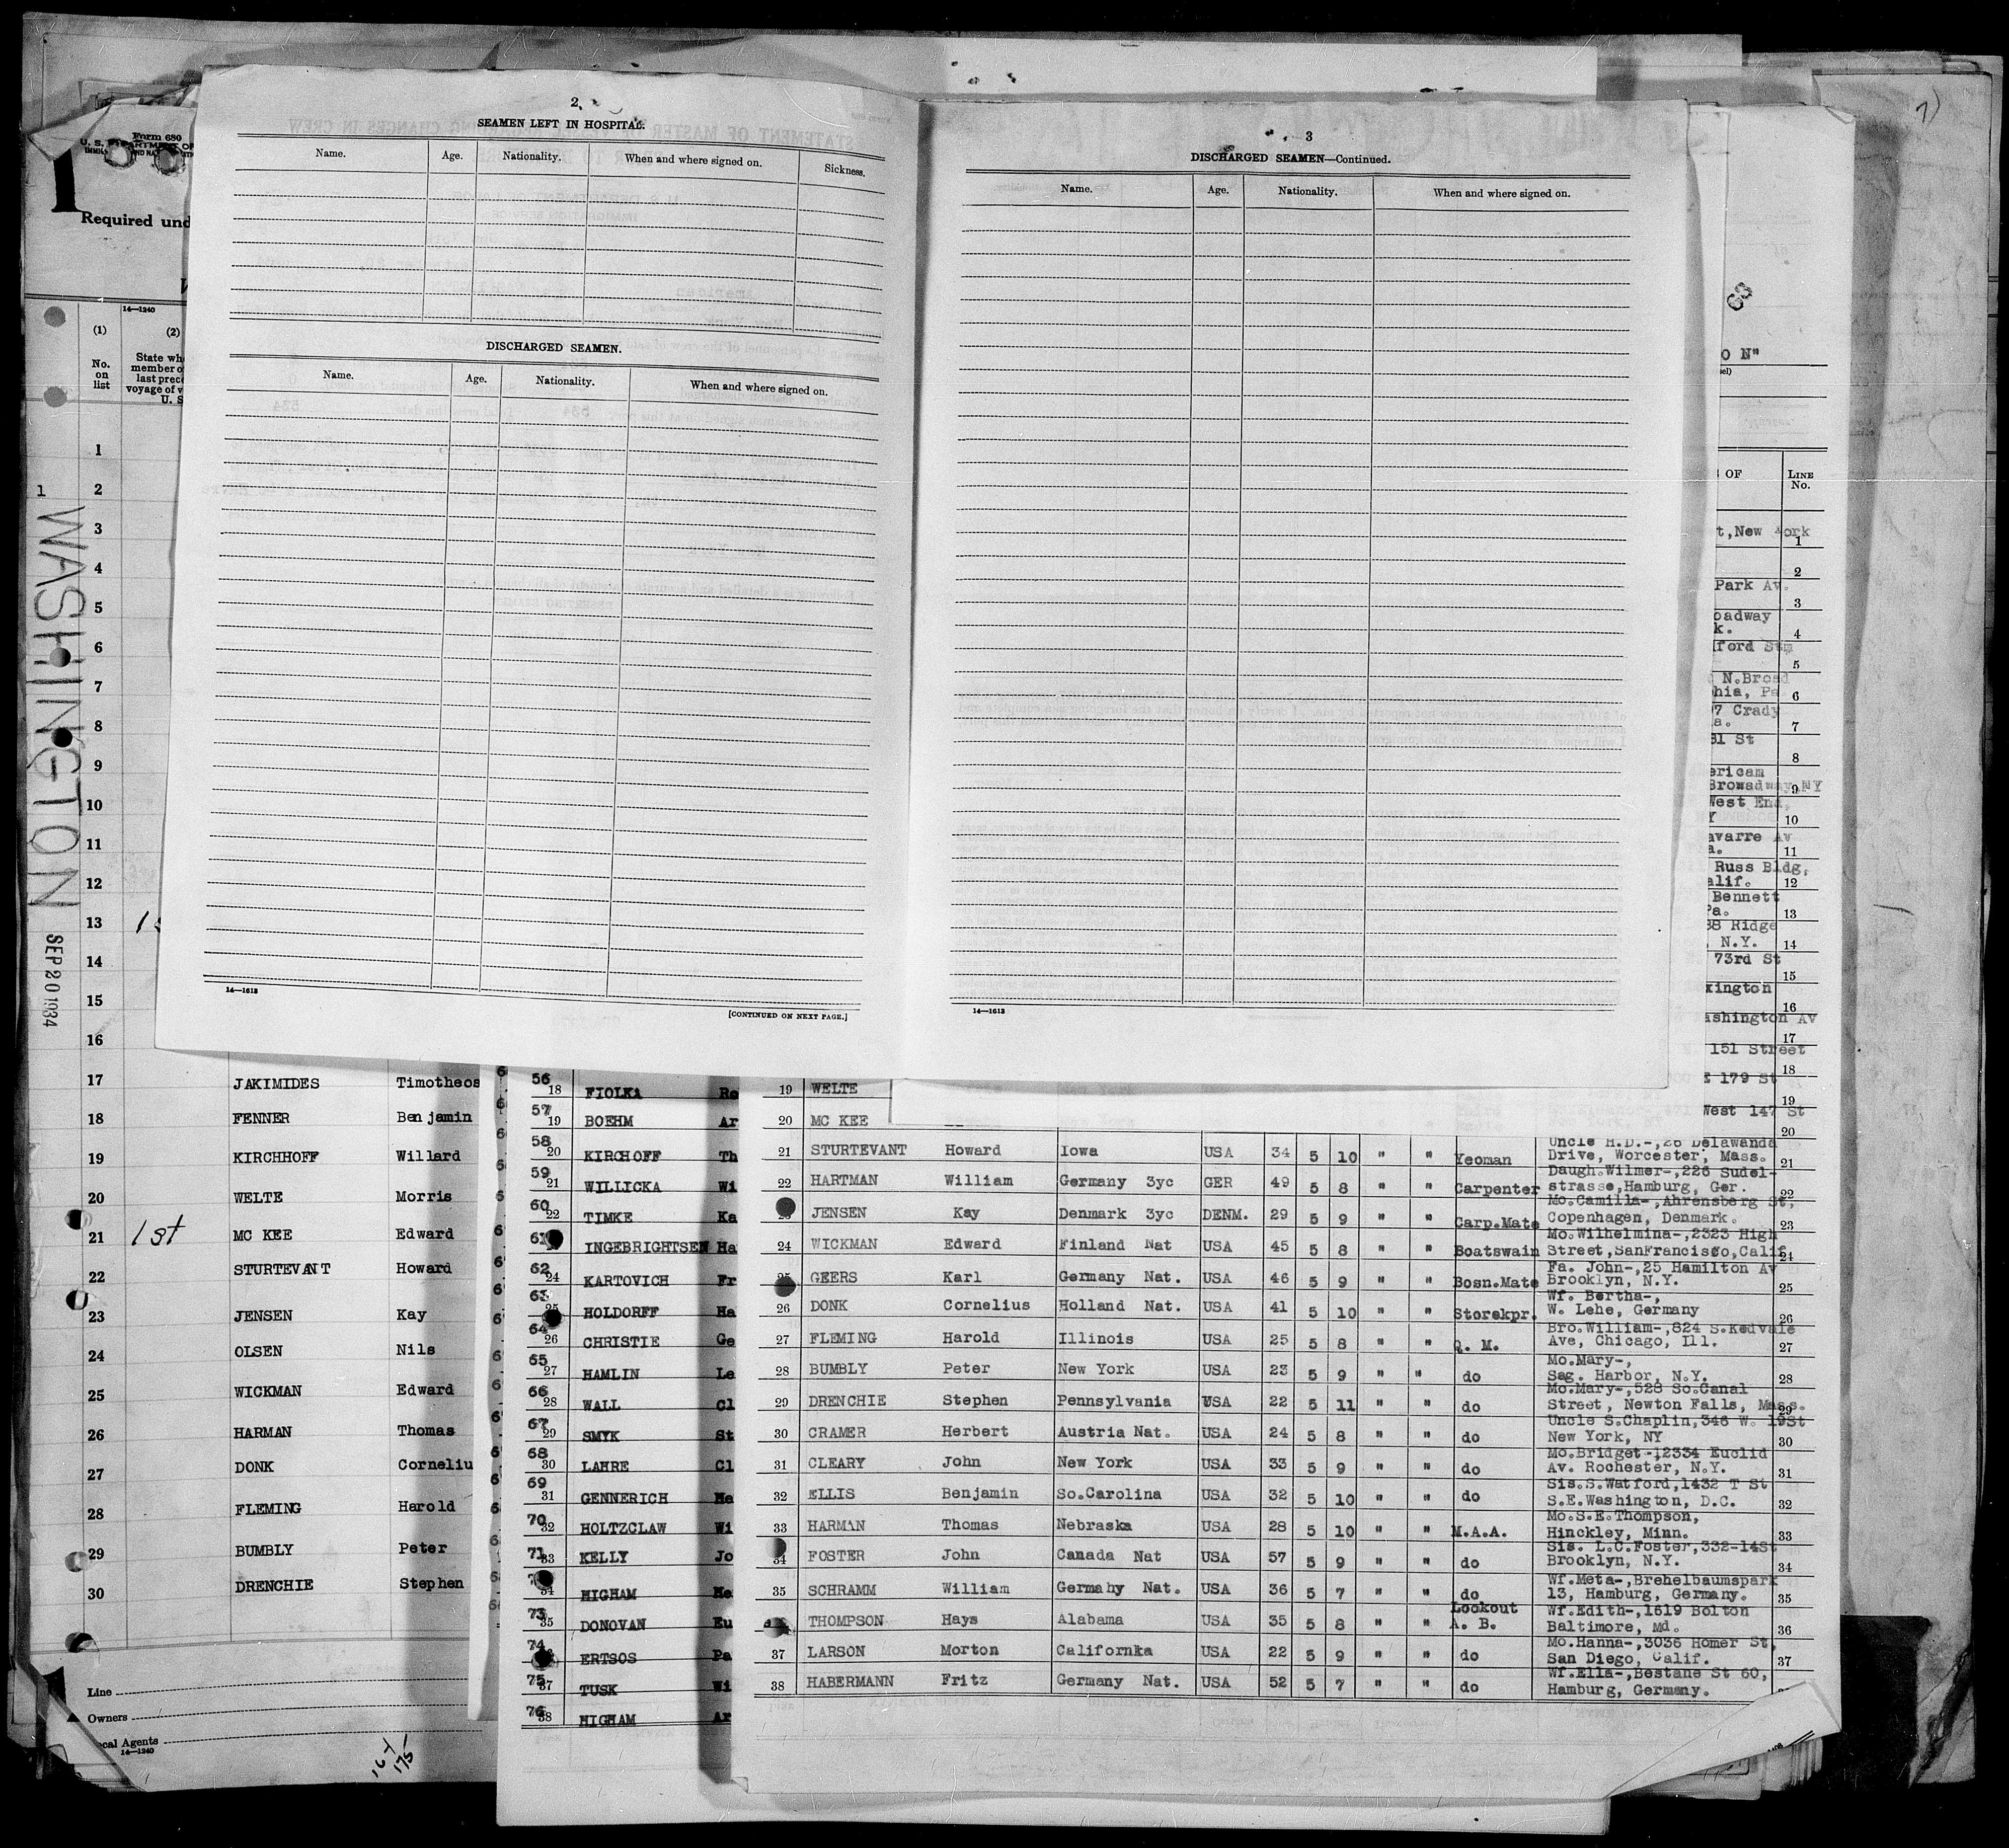 Form 680
U. S. DEPARTMENT OF
Required und
14—1240
(1) (2)
No. on list
State wh
member o
last prece
voyage of v
U. S
1
2
3
4
5
6
7
8
9
10
11
12
13
14
15
16
1 WASHINGTON
SEP 20 1934
2
SEAMEN LEFT IN HOSPITAL.
Name. Age. Nationality. When and where signed on. Sickness.
DISCHARGED SEAMEN.
Name. Age. Nationality. When and where signed on.
14—1613
[CONTINUED ON NEXT PAGE.]
3
DISCHARGED SEAMEN—Continued.
Name. Age. Nationality. When and where signed on.
14—1613
63
O N"
S OF LINE No.
t,New York 1
2
Park Av. 3
oadway
k. 4
ford 5
N.Broad
hia, Pa 6
7 Crady
a. 7
31 St 8
erican
Browadway,NY 9
West End,
Y 10
avarre Av
a. 11
Russ Bldg,
alif. 12
Bennett
Pa. 13
38 Ridge
N.Y. 14
73rd St 15
xington 16
ashington Av 17
151 Street 18
179 St 19
West 147 St 20
17 JAKIMIDES Timotheos
18 FENNER Benjamin
19 KIRCHHOFF Willard
20 WELTE Morris
21 1st MC KEE Edward
22 STURTEVANT Howard
23 JENSEN Kay
24 OLSEN Nils
25 WICKMAN Edward
26 HARMAN Thomas
27 DONK Corneliu
28 FLEMING Harold
29 BUMBLY Peter
30 DRENCHIE Stephen
Line
Owners
cal Agents
14—1240
164
175
56 18 FIOLKA Ro
57 19 BOEHM Ar
58 20 KIRCHOFF Th
59 21 WILLICKA Wi
60 22 TIMKE Ka
61 INGEBRIGHTSEN Ha
62 24 KARTOVICH Fr
63 25 HOLDORFF Ha
64 26 CHRISTIE Ge
65 27 HAMLIN Le
66 28 WALL Cl
67 29 SMYK St
68 30 LAHRE Cl
69 31 GENNERICH He
70 32 HOLTZCLAW Wi
71 33 KELLY Jo
34 HIGHAM He
73 35 DONOVAN Eu
74 ERTSOS Pa
75 37 TUSK Wi
76 38 HIGHAM Ar
19 WELTE
20 MC KEE
Uncle H.D.-,26 Delawanda
21 STURTEVANT Howard Iowa USA 34 5 10 " " Yeoman Drive, Worcester, Mass. 21
Daugh.Wilmer-,226 Sudel-
22 HARTMAN William Germany 3yc GER 49 5 8 " " Carpenter strasse,Hamburg, Ger. 22
Mo.Camilla-,Ahrensberg St,
JENSEN Kay Denmark 3yc DENM. 29 5 9 " " Carp.Mate Copenhagen, Denmark. 23
Mo.Wilhelmina-,2323 High
24 WICKMAN Edward Finland Nat USA 45 5 8 " " Boatswain Street,SanFrancisco,Calif 24
Fa. John-,25 Hamilton Av
25 GEERS Karl Germany Nat. USA 46 5 9 " " Bosn.Mate Brooklyn, N.Y. 25
Wf. Bertha-,
26 DONK Cornelius Holland Nat. USA 41 5 10 " " Storekpr. W. Lehe, Germany 26
Bro.William-,824 S.Kedvale
27 FLEMING Harold Illinois USA 25 5 8 " " Q. M. Ave, Chicago, Ill. 27
Mo.Mary-,
28 BUMBLY Peter New York USA 23 5 9 " " do Sag. Harbor, N.Y. 28
Mo.Mary-,528 So.Canal
29 DRENCHIE Stephen Pennsylvania USA 22 5 11 " " do Street, Newton Falls, Mass. 29
Uncle S.Chaplin,346 W. 19St
30 CRAMER Herbert Austria Nat. USA 24 5 8 " " do New York, NY 30
Mo.Bridget-12334 Euclid
31 CLEARY John New York USA 33 5 9 " " do Av. Rochester, N.Y. 31
Sis.S.Watford,1432 T St
32 ELLIS Benjamin So.Carolina USA 32 5 10 " " do S.E.Washington, D.C. 32
Mo.S.E.Thompson,
33 HARMAN Thomas Nebraska USA 28 5 10 " " M.A.A. Hinckley, Minn. 33
Sis. L.C.Foster,332-14St
34 FOSTER John Canada Nat USA 57 5 9 " " do Brooklyn, N.Y. 34
Wf.Meta-,Brehelbaumspark
35 SCHRAMM William Germahy Nat. USA 36 5 7 " " do 13, Hamburg, Germany. 35
Lookout Wf.Edith-,1619 Bolton
THOMPSON Hays Alabama USA 35 5 8 " " A. B. Baltimore, Md. 36
Mo.Hanna-,3036 Homer St,
37 LARSON Morton Californka USA 22 5 9 " " do San Diego, Calif. 37
Wf.Ella-,Bestane St 60,
38 HABERMANN Fritz Germany Nat. USA 52 5 7 " " do Hamburg, Germany.